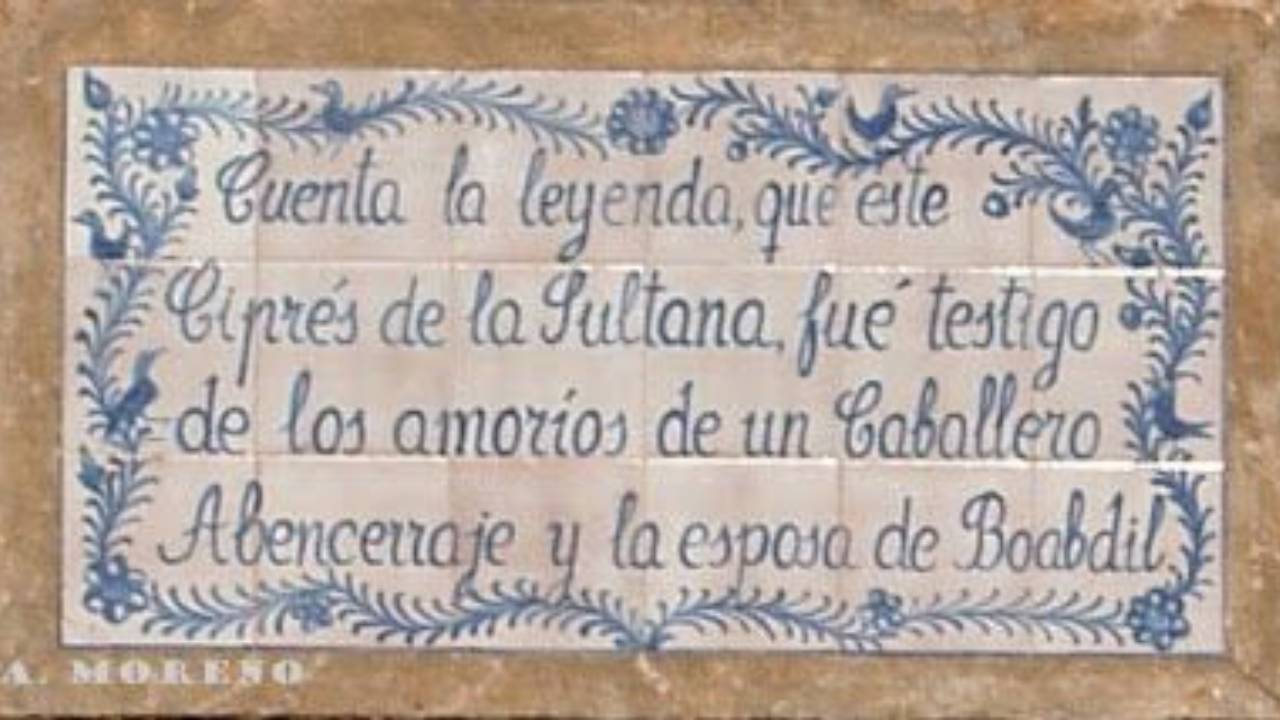 Cuenta la leyenda, que este
Ciprés de la Sultana, fué testigo
de los amoríos de un Caballero
Abencerraje y la esposa de Boabdil,
A. MORENO